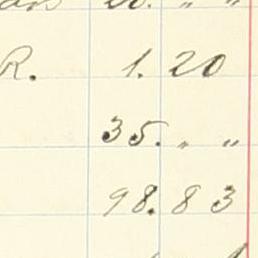 R. 1. 20
35. " "
98. 83